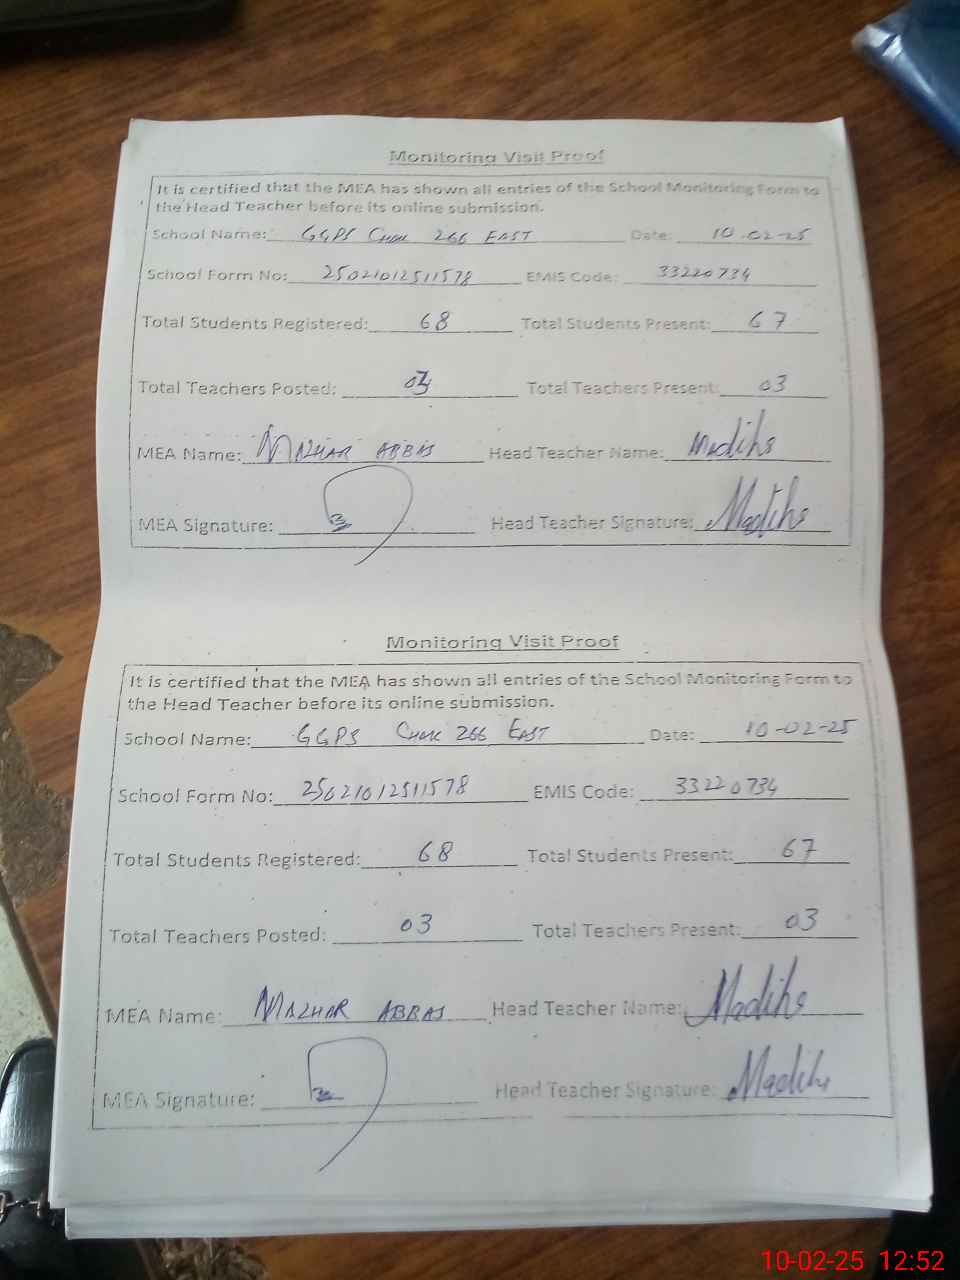 Monitoring Visit Proof
It is certified that the MEA has shown all entries of the School Monitoring Form to
the Head Teacher before its online submission.
School Name: GGPS CHAK 266 EAST Date: 10-02-25
School Form No: 25021012511578 EMIS Code: 33220734
Total Students Registered: 68 Total Students Present: 67
Total Teachers Posted: 03 Total Teachers Present: 03
MEA Name: MAZHAR ABBAS Head Teacher Name: Madiha
MEA Signature: Head Teacher Signature: Madiha
Monitoring Visit Proof
It is certified that the MEA has shown all entries of the School Monitoring Form to
the Head Teacher before its online submission.
School Name: GGPS CHAK 266 EAST Date: 10-02-25
School Form No: 25021012511578 EMIS Code: 33220734
Total Students Registered: 68 Total Students Present: 67
Total Teachers Posted: 03 Total Teachers Present: 03
MEA Name: MAZHAR ABBAS Head Teacher Name: Madiha
MEA Signature: Head Teacher Signature: Madiha
10-02-25 12:52